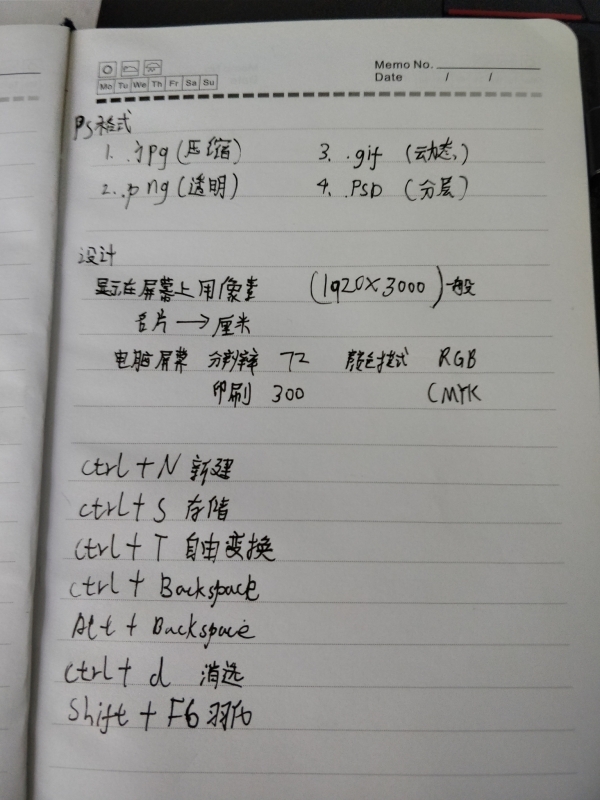 Memo No.
Mo Tu We Th Fr Sa Su
Date / /
PS格式
1. .jpg (压缩) 3. .gif (动态)
2. .png (透明) 4. .PSD (分层)
设计
显示在屏幕上用像素 (1920×3000)一般
名片→厘米
电脑屏幕 分辨率 72 颜色模式 RGB
印刷 300 CMYK
ctrl + N 新建
ctrl + S 存储
ctrl + T 自由变换
ctrl + Backspace
Alt + Backspace
ctrl + d 消选
Shift + F6 羽化